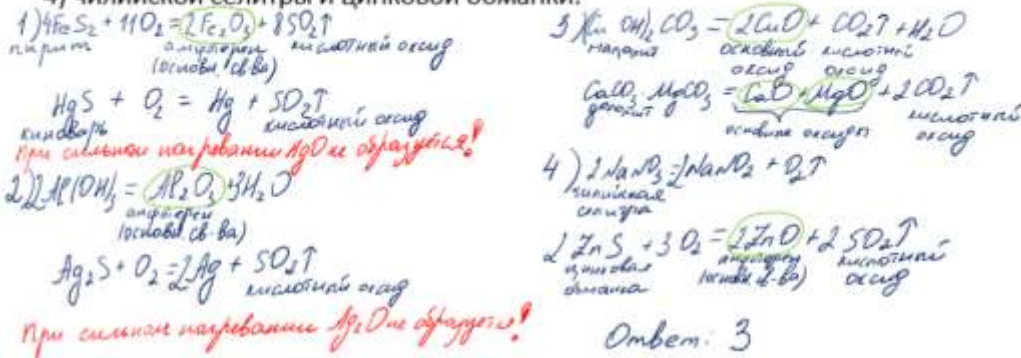 4) чилийской селитры и цинковой обманки.
1) 4FeS₂ + 11O₂ = 2Fe₂O₃ + 8SO₂↑
пирит амфотерн кислотный оксид
(основн. св-ва)
HgS + O₂ = Hg + SO₂↑
киноварь кислотный оксид
При сильном нагревании HgO не образуется!
2) 2Al(OH)₃ = Al₂O₃ + 3H₂O
амфотерн
(основн. св-ва)
Ag₂S + O₂ = 2Ag + SO₂↑
кислотный оксид
При сильном нагревании Ag₂O не образуется!
3) (CuOH)₂CO₃ = 2CuO + CO₂↑ + H₂O
малахит основный кислотный
оксид оксид
CaCO₃·MgCO₃ = CaO + MgO + 2CO₂↑
доломит кислотный
основные оксиды оксид
4) 2NaNO₃ = 2NaNO₂ + O₂↑
чилийская
селитра
2ZnS + 3O₂ = 2ZnO + 2SO₂↑
цинковая амфотерн кислотный
обманка (основн. св-ва) оксид
Ответ: 3